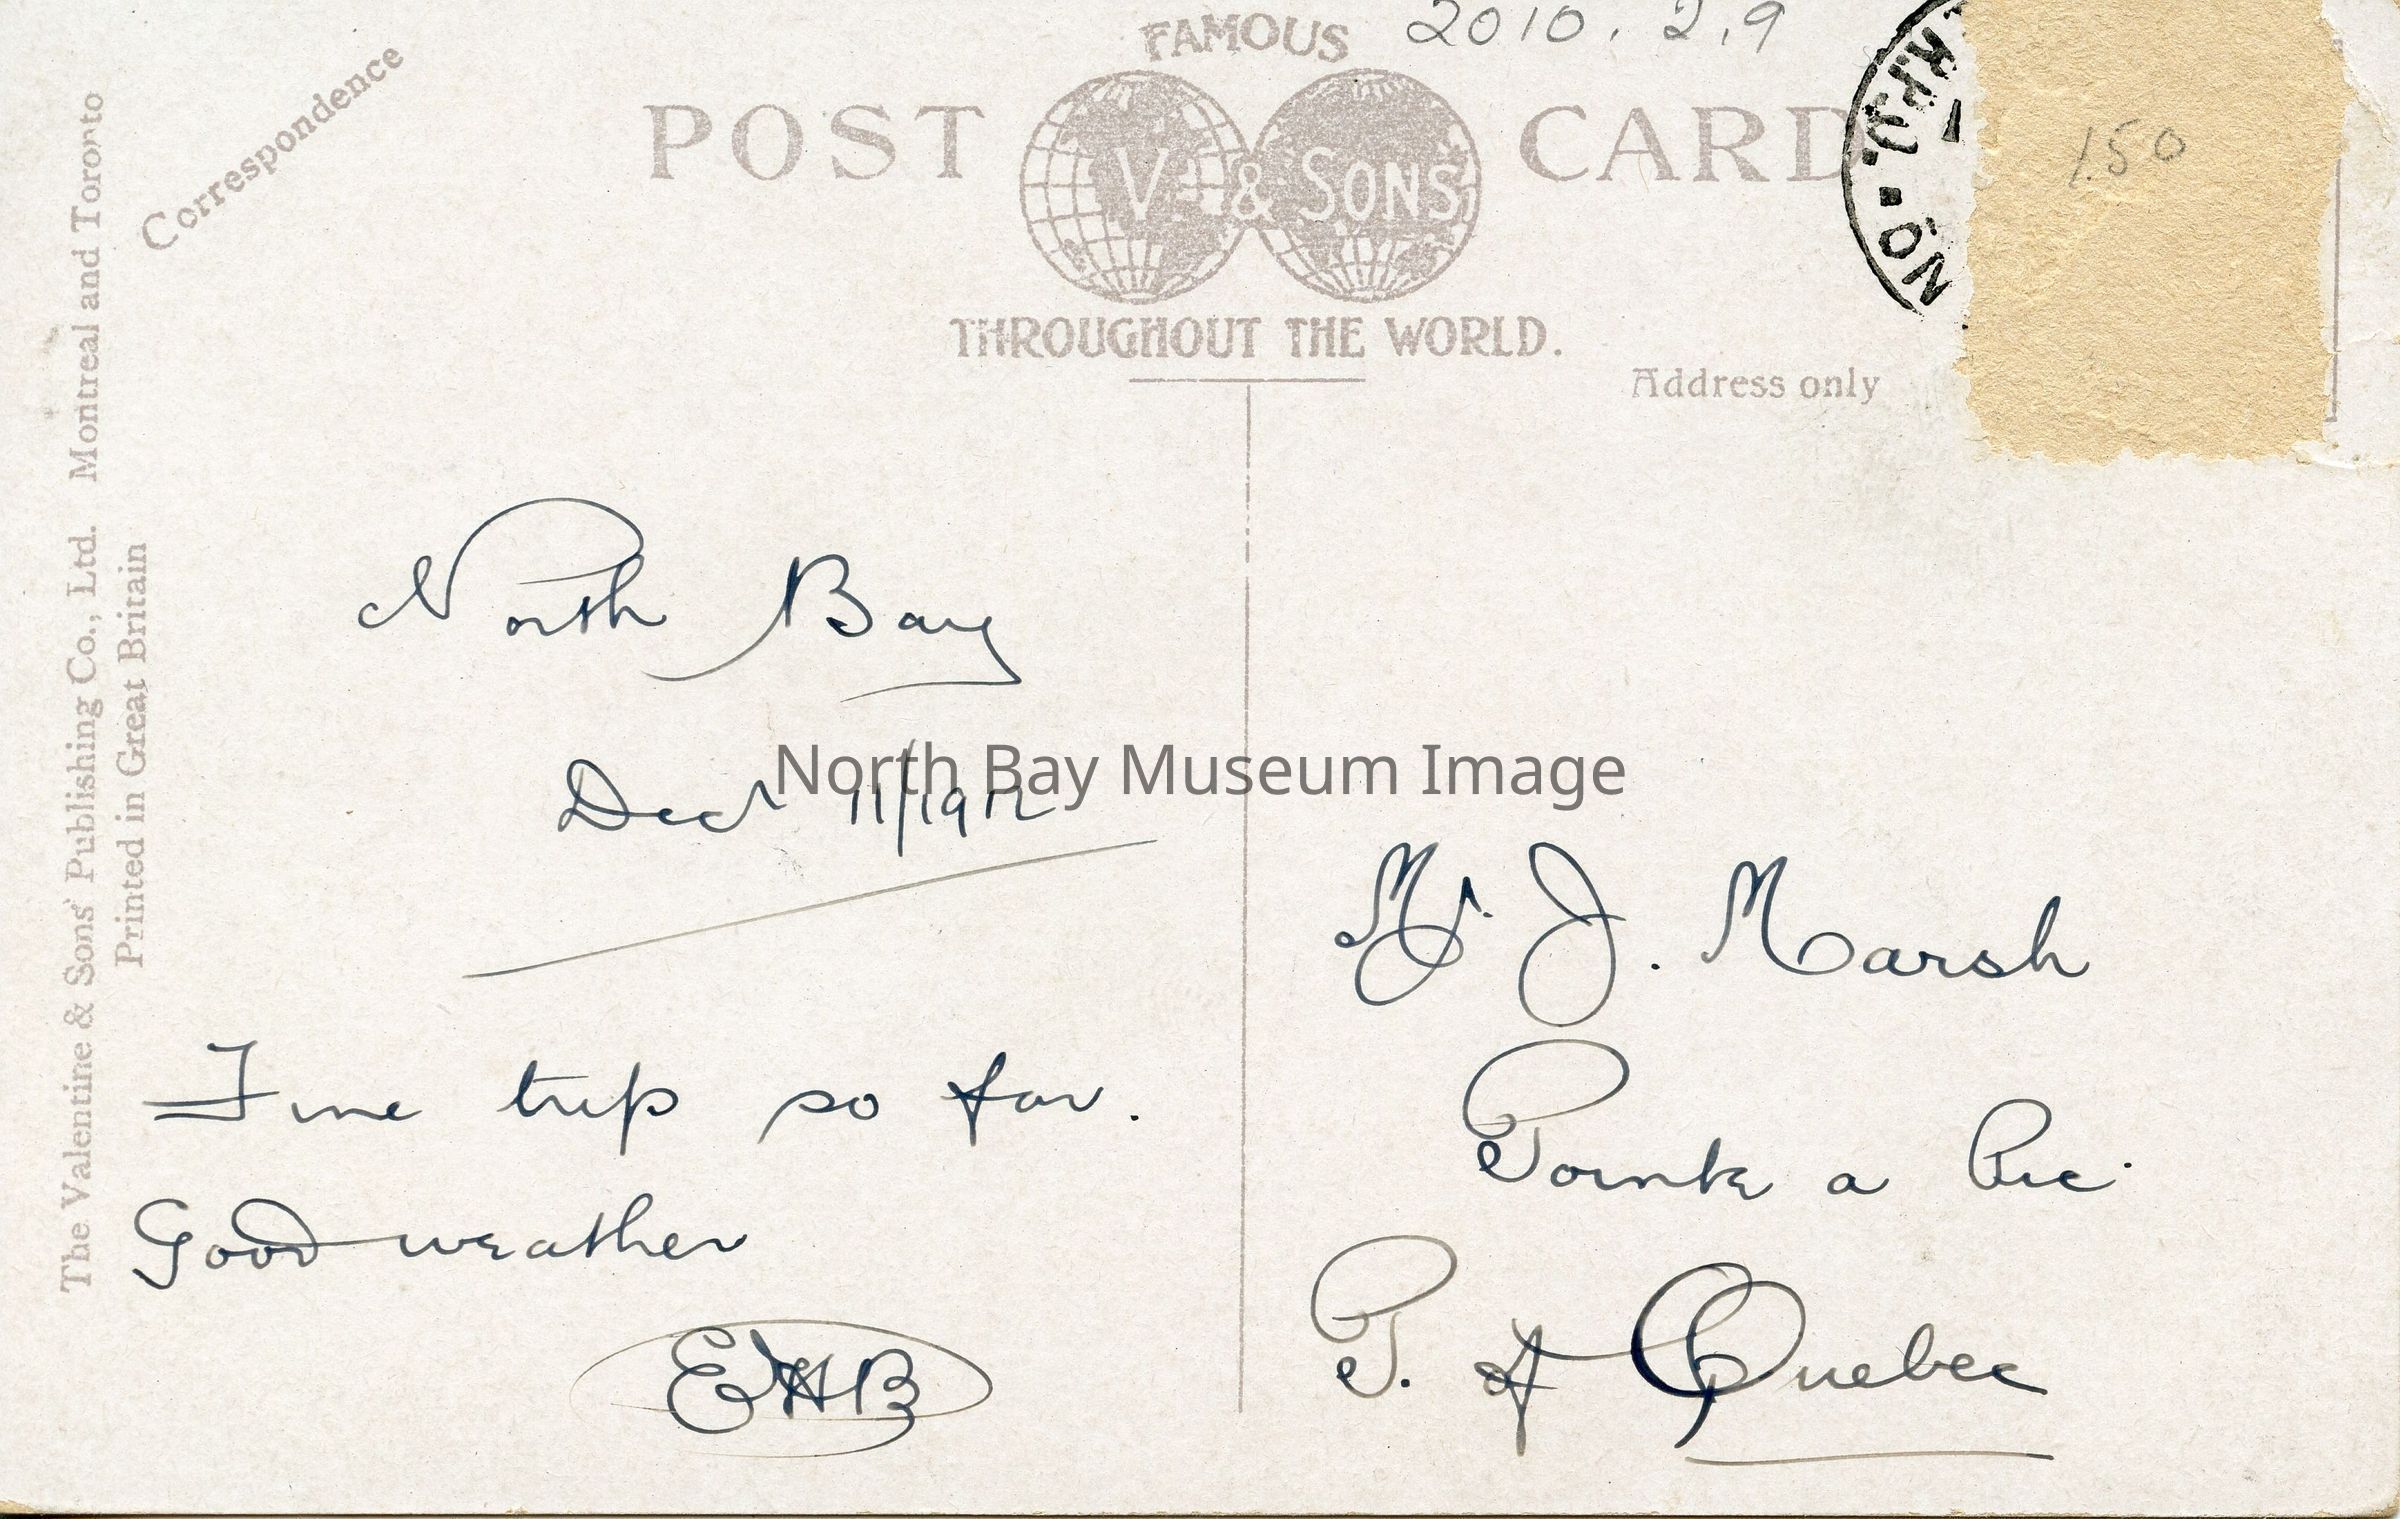 2010.2.9
FAMOUS
POST CARD
V & SONS
THROUGHOUT THE WORLD.
Correspondence
Address only
1.50
The Valentine & Sons' Publishing Co., Ltd. Montreal and Toronto
Printed in Great Britain
North Bay
Dec 11/1912
North Bay Museum Image
Fine trip so far.
Good weather
EHB
Mr. J. Marsh
Pointe a Pic
P. of Quebec
R.P.O. NO